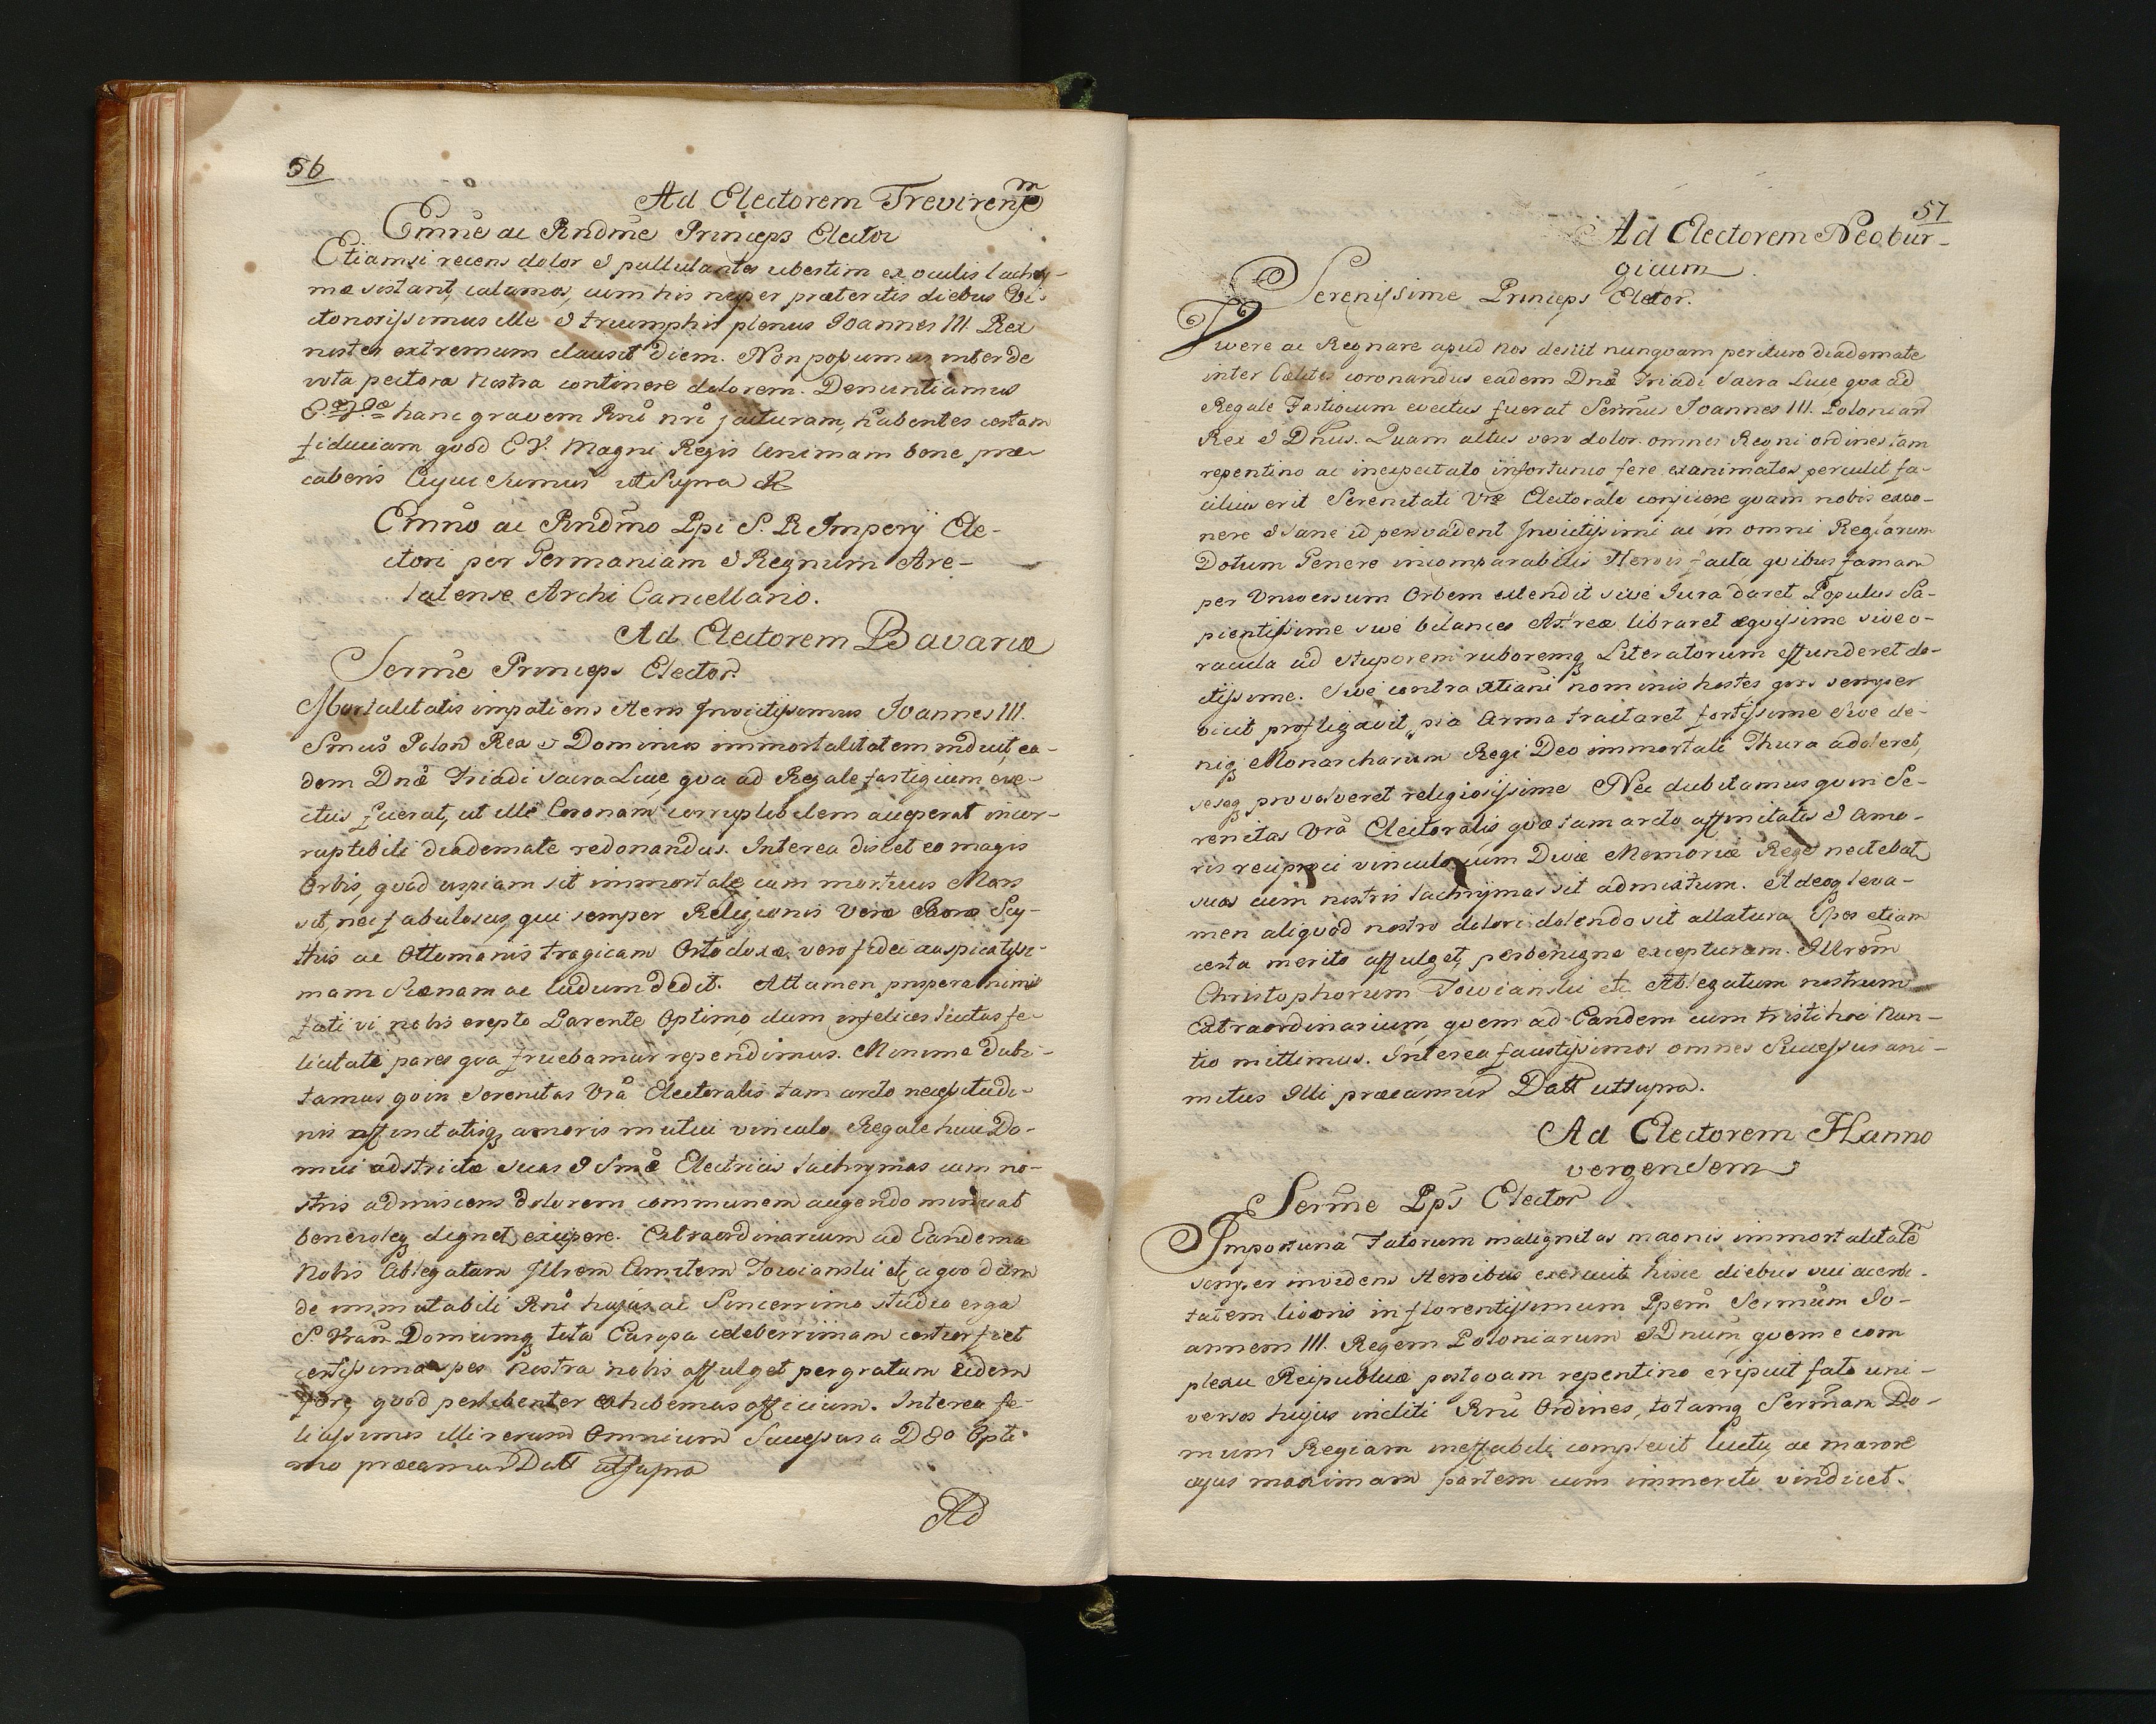 56
Ad Electorem Trevirensem
Emne ac Rndme Princeps Elector
Etiamsi recens dolor & pullulantes ubertim ex oculis lachry-
mæ sistant, calamos, cum his nuper præteritis diebus Vi-
ctoriosissimus ille & triumphis plenus Joannes III. Rex
noster extremum clausit diem. Non possumus inter de
vota pectora nostra continere dolorem. Denuntiamus
hanc gravem Rni nri jacturam, habentes certam
fiduciam quod E V. Magni Regis Animam bene pre-
caberis Cujus sumus ut Supra
Emno ac Rndmo Ppi S. R Imperij Ele-
ctori per Germaniam & Regnum Are-
latense Archi Cancellario.
Ad Electorem Bavariæ
Serme Princeps Elector
Mortalitatis impatiens Heros Invictissimus Joannes III.
Smus Polon Rex & Dominus immortalitatem induit, ea-
dem Dnæ Triadi sacra Luce qva ad Regale fastigium eve-
ctus fuerat, ut ille Coronam corruptibilem acceperat incor-
ruptibili diademate redonandus. Interea discet eo magis
Orbis, quod uspiam sit immortale cum mortuus Mars
sit, nec fabulosus, qui semper Religionis veræ Scy-
this ac Ottomanis tragicam Ortodoxæ vero fidei auspicatissi-
mam Scænam ac ludum dedit. Attamen propera nimis
fati vi nobis erepto Parente Optimo, dum infelices luctus fe-
licitati pares qva fruebamur rependimus. Minime dubi-
tamus qvin Serenitas Vra Electoralis tam arcto necessitudi-
nis affinitatisq amoris mutui vinculo Regale huic Do-
mui adstricta suas & Smæ Electricis lachrymas cum no-
stris admiscens dolorem communem augendo minuat
benevoleq dignet excipere. Extraordinarium ad Eandem a
Nobis Ablegatum Illrem Comitem Towianski etc a quo dum
de immutabili Rni hujus ac Sincerrimo studio erga
S Vram Domumq tota Europa celeberrimam certior fiet
certissima spes nostra nobis affulget pergratum Eidem
fore qvod perlibenter exhibemus officium. Interea fe-
licissimos illi rerum Omnium Successus a DEO Opti-
mo præcamur Datt ut supra
Ad
57
Ad Electorem Neobur-
gicum.
Serenissime Princeps Elector.
Vivere ac Regnare apud nos desiit nunqvam perituro diademate
inter Cælites coronandus eadem Dnæ Triadi sacra Luce qva ad
Regale Fastigium evectus fuerat Sermus Joannes III. Poloniarum
Rex & Dnus. Quam altus vero dolor omnes Regni ordines tam
repentino ac inexpectato infortunio fere exanimatos perculit fa-
cilius erit Serenitati Vræ Electorali conjicere qvam nobis expo-
nere & sane id persvadent Invictissimi ac in omni Regiarum
Dotum Genere incomparabilis Herois facta qvibus famam
per Universum Orbem extendit sive Jura daret Populus Sa-
pientissime sive bilances Astreæ libraret æqvissime sive o-
racula ad stuporem ruboremq Literatorum effunderet do-
ctissime. Sive contra Xtiani nominis hostes qvos semper
vicit profligavit, pia Arma tractaret fortissime sive de-
niq Monarcharum Regi Deo immortali Thura adoleret,
seseq provolveret religiosissime Nec dubitamus qvin Se-
renitas Vra Electoralis qvæ tam arcto affinitatis & amo-
ris reciproci vinculo cum Divæ Memoriæ Rege nectebat
suas cum nostris lachrymas sit admixtum. Adeoq leva-
men aliqvod nostro dolori dolendo sit allatura Spes etiam
certa merito affulget, perbenigne excepturam. Illrem
Christophorum Towianski etc Ablegatum nostrum
Extraordinarium, qvem ad Eandem cum tristi hoc Nun-
tio mittimus. Interea faustissimos omnes Successus ani-
mitus Illi præcamur Datt ut supra.
Ad Electorem Hanno
vergensem
Serme Pps Elector
Importuna Fatorum malignitas magnis immortalitate
semper invidens Heroibus exeruit hisce diebus sui acerbi-
tatem livoris in florentissimum Ppem Sermum Jo-
annem III. Regem Poloniarum & Dnum, qvem e com
plexu Reipublicæ postqvam repentino eripuit fato uni-
versos hujus incliti Rni Ordines, totamq Sermam Do-
mum Regiam ineffabili complevit luctu, ac mærore
cujus maximam partem cum immerito vindicet.